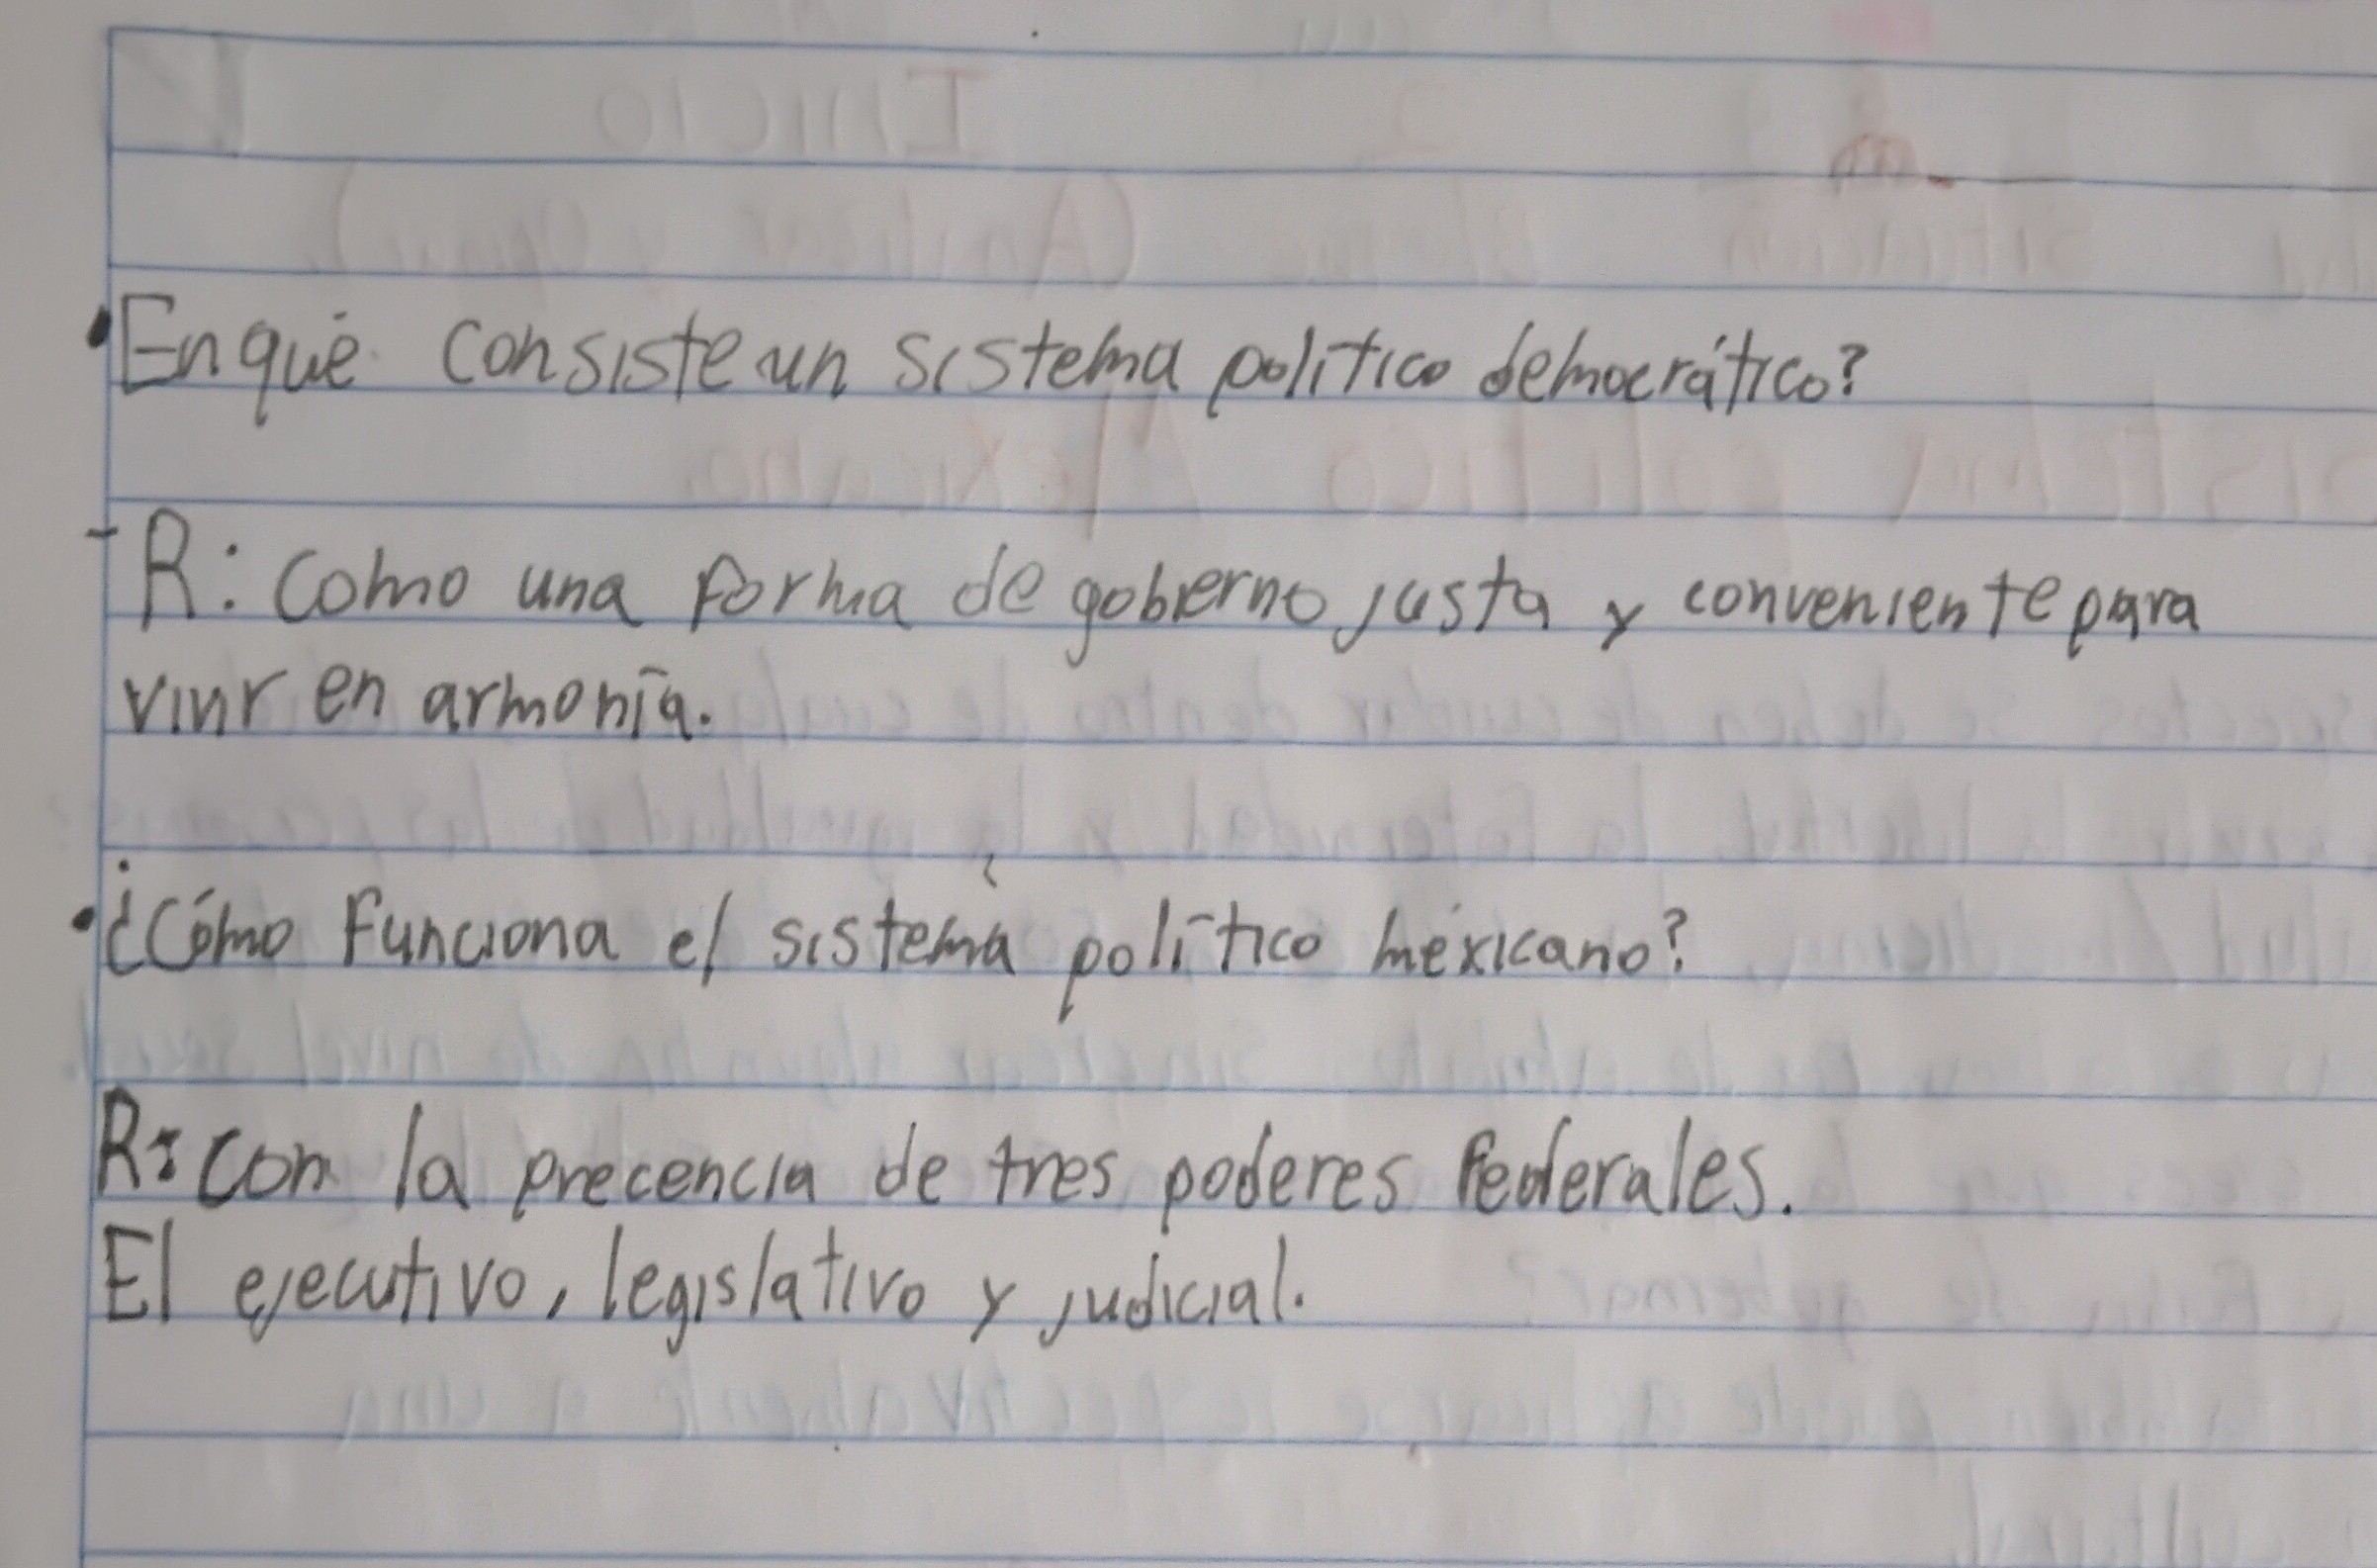 •En qué consiste un sistema político democrático?
-R: Como una forma de gobierno justa y conveniente para
vivir en armonía.
•¿Cómo funciona el sistema político mexicano?
R: Con la precencia de tres poderes federales.
El ejecutivo, legislativo y judicial.